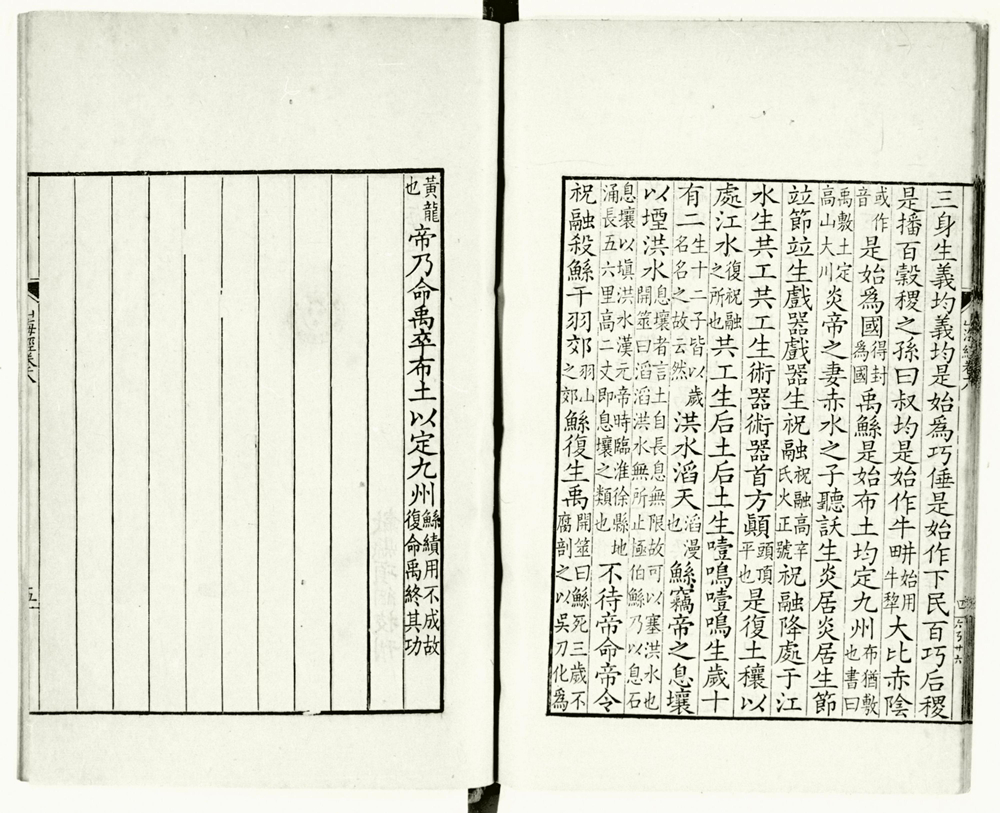 三身生義均義均是始爲巧倕是始作下民百巧后稷
是播百穀稷之孫曰叔均是始作牛畊始用牛犂大比赤陰
或作音是始爲國得封爲國禹鯀是始布土均定九州布猶敷也書曰
禹敷土定高山大川炎帝之妻赤水之子聽訞生炎居炎居生節
竝節竝生戲器戲器生祝融祝融高辛氏火正號祝融降處于江
水生共工共工生術器術器首方顚頭頂平也是復土穰以
處江水復祝融之所也共工生后土后土生噎鳴噎鳴生歲十
有二生十二子皆以歲名名之故云然洪水滔天滔漫也鯀竊帝之息壤
以堙洪水息壤者言土自長息無限故可以塞洪水也開筮曰滔滔洪水無所止極伯鯀乃以息石
息壤以塡洪水漢元帝時臨淮徐縣地涌長五六里高二丈即息壤之類也不待帝命帝令
祝融殺鯀于羽郊羽山之郊鯀復生禹開筮曰鯀死三歲不腐剖之以吳刀化爲
黃龍也帝乃命禹卒布土以定九州鯀績用不成故復命禹終其功
山海經卷八
五